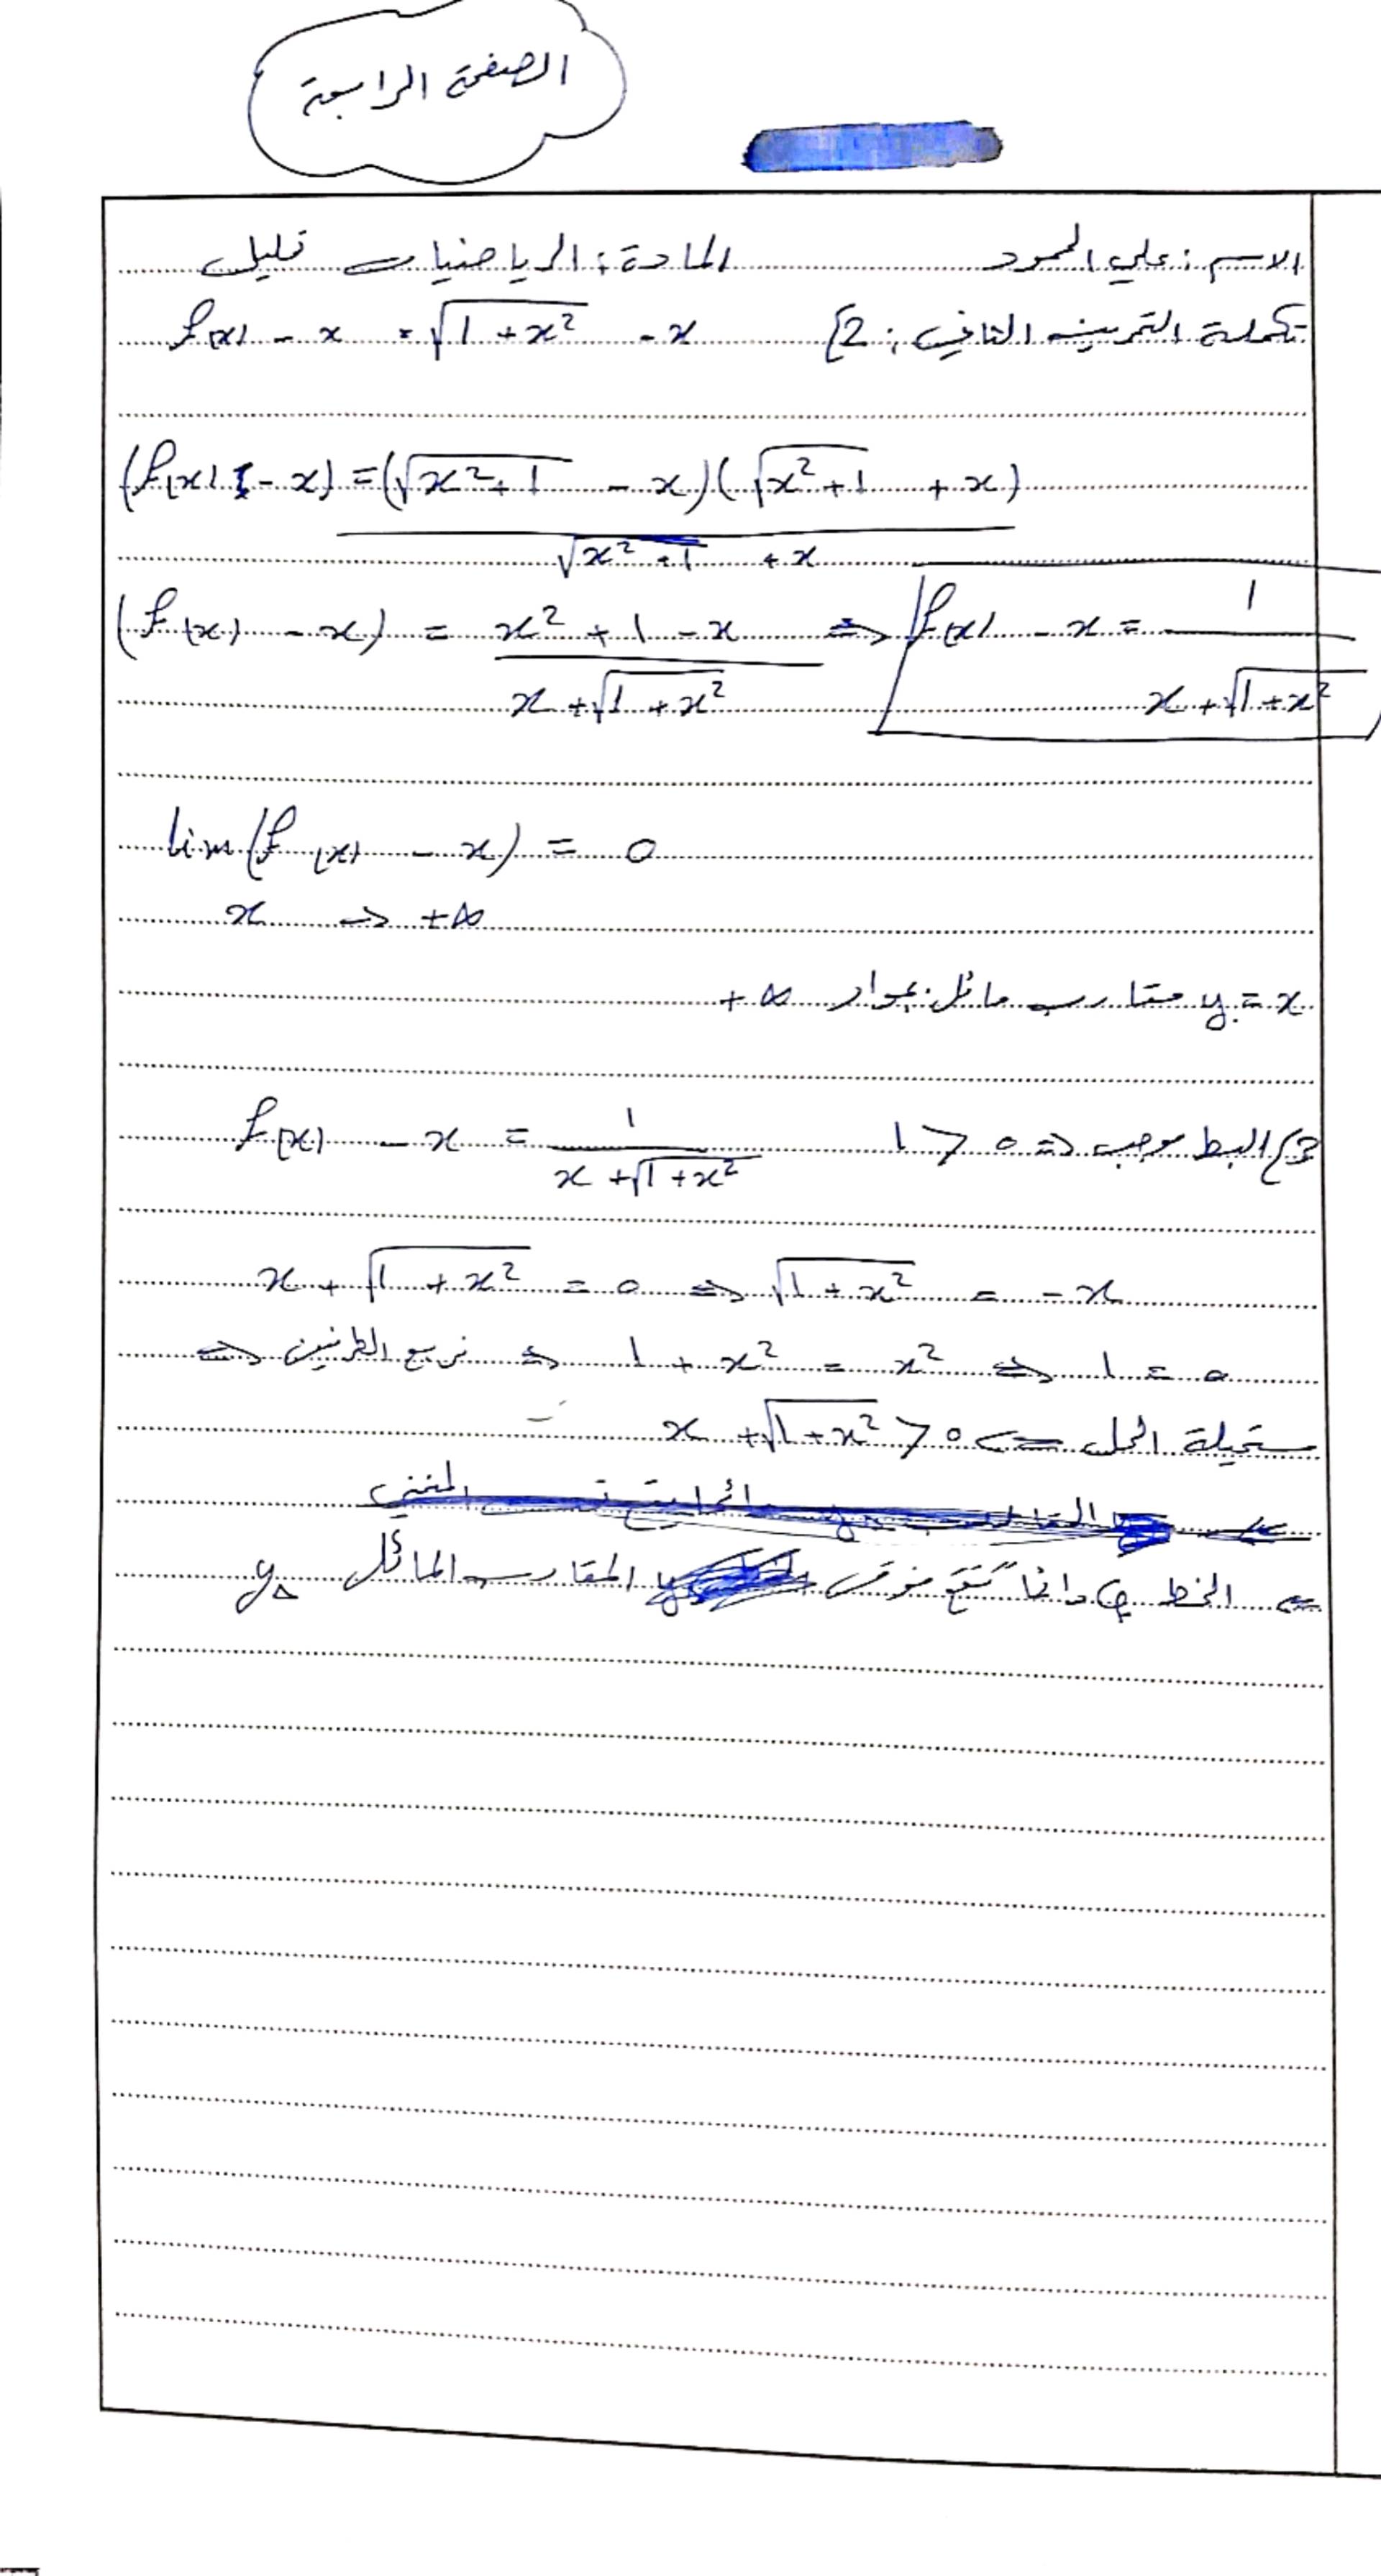 الصفحة الرابعة
الاسم : علي الحمود المادة : الرياضيات تحليل
تكملة التمرين الثاني : 2] f(x) - x = √(1 + x²) - x
(f(x) - x) = (√(x² + 1) - x)(√(x² + 1) + x) / (√(x² + 1) + x)
(f(x) - x) = (x² + 1 - x) / (x + √(1 + x²)) ⇒ f(x) - x = 1 / (x + √(1 + x²))
lim (f(x) - x) = 0
x → +∞
y = x مقارب مائل بجوار +∞
3] البسط موجب ⇒ 1 > 0 f(x) - x = 1 / (x + √(1 + x²))
x + √(1 + x²) = 0 ⇒ √(1 + x²) = - x
⇒ نربع الطرفين ⇒ 1 + x² = x² ⇒ 1 = 0
مستحيلة الحل ⇐ x + √(1 + x²) > 0
⇐ الخط C دائماً يقع فوق المقارب المائل yΔ